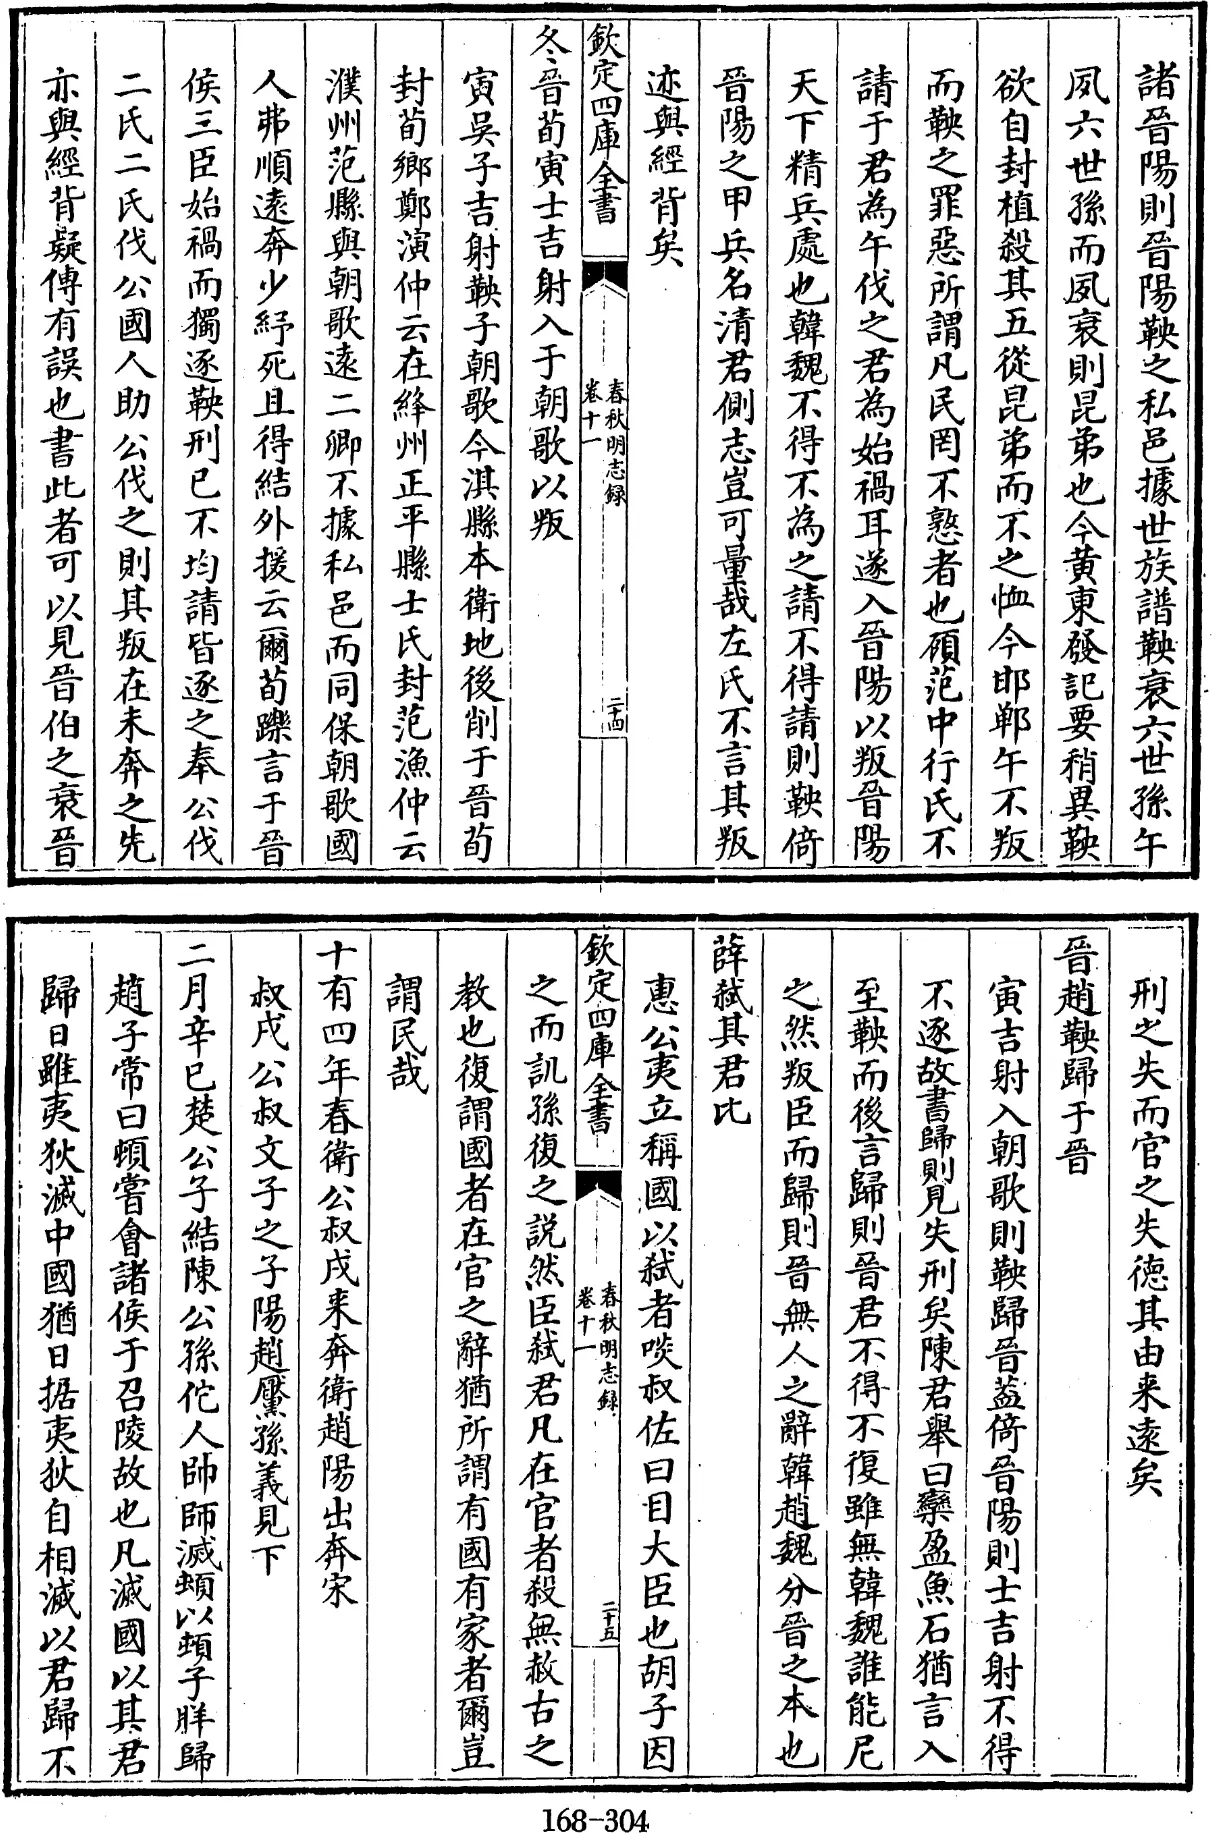 諸晉陽則晉陽鞅之私邑據世族譜鞅衰六世孫午
夙六世孫而夙衰則昆弟也今黄東發記要稍異鞅
欲自封植殺其五從昆弟而不之恤今邯鄲午不叛
而鞅之罪惡所謂凡民罔不憝者也頋范中行氏不
請于君為午伐之君為始禍耳遂入晉陽以叛晉陽
天下精兵處也韓魏不得不為之請不得請則鞅倚
晉陽之甲兵名清君側志豈可量哉左氏不言其叛
迹與經背矣
欽定四庫全書
春秋明志録
卷十一
二十四
冬晉荀寅士吉射入于朝歌以叛
寅吳子吉射鞅子朝歌今淇縣本衛地後削于晉荀
封荀鄉鄭漁仲云在絳州正平縣士氏封范漁仲云
濮州范縣與朝歌逺二卿不據私邑而同保朝歌國
人弗順逺奔少紓死且得結外援云爾荀躒言于晉
侯三臣始禍而獨逐鞅刑已不均請皆逐之奉公伐
二氏二氏伐公國人助公伐之則其叛在未奔之先
亦與經背疑傳有誤也書此者可以見晉伯之衰晉
刑之失而官之失德其由来逺矣
晉趙鞅歸于晉
寅吉射入朝歌則鞅歸晉葢倚晉陽則士吉射不得
不逐故書歸則見失刑矣陳君舉曰欒盈魚石猶言入
至鞅而後言歸則晉君不得不復雖無韓魏誰能尼
之然叛臣而歸則晉無人之辭韓趙魏分晉之本也
薛弑其君比
惠公夷立稱國以弑者啖叔佐曰目大臣也胡子因
欽定四庫全書
春秋明志録
卷十一
二十五
之而訊孫復之説然臣弑君凡在官者殺無赦古之
教也復謂國者在官之辭猶所謂有國有家者爾豈
謂民哉
十有四年春衛公叔戍来奔衛趙陽出奔宋
叔戍公叔文子之子陽趙黶孫義見下
二月辛巳楚公子結陳公孫佗人帥師滅頓以頓子牂歸
趙子常曰頓嘗會諸侯于召陵故也凡滅國以其君
歸日雖夷狄滅中國猶日据夷狄自相滅以君歸不
168-304